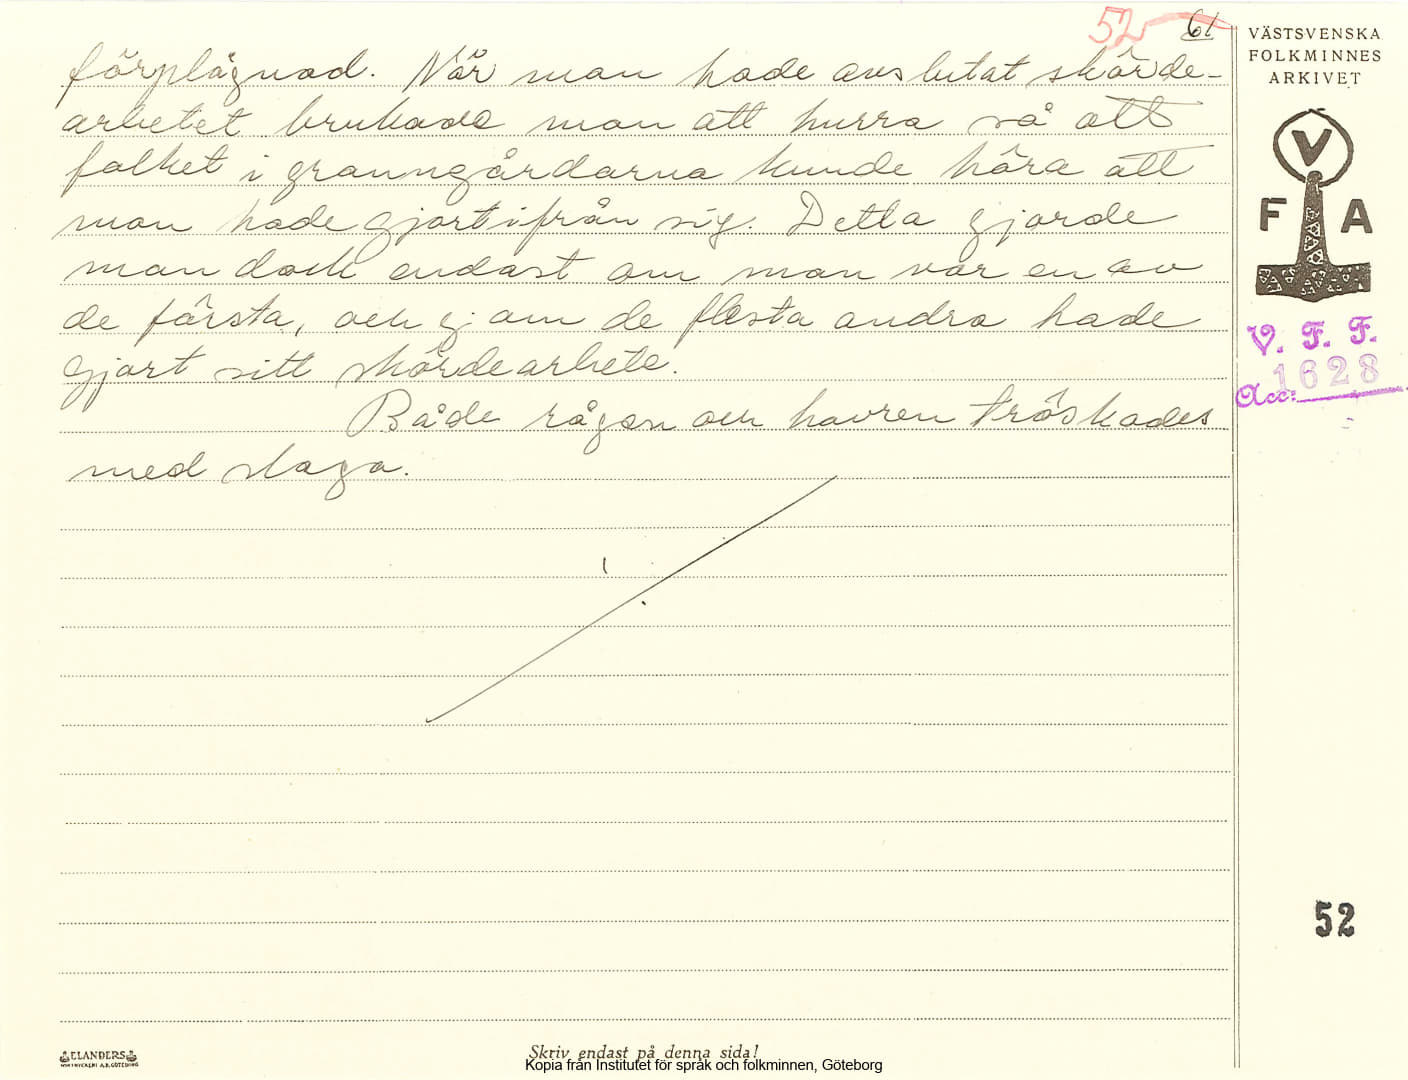 52 61
förplägnad. När man hade avslutat skörde-
arbetet brukade man att hurra så att
folket i granngårdarna kunde höra att
man hade gjort ifrån sig. Detta gjorde
man dock endast om man var en av
de första, och ej om de flesta andra hade
gjort sitt skördearbete.
Både rågen och havren tröskades
med slaga.
VÄSTSVENSKA
FOLKMINNES
ARKIVET
V
F A
V. F. F.
Acc: 1628
52
ELANDERS
Skriv endast på denna sida!
Kopia från Institutet för språk och folkminnen, Göteborg